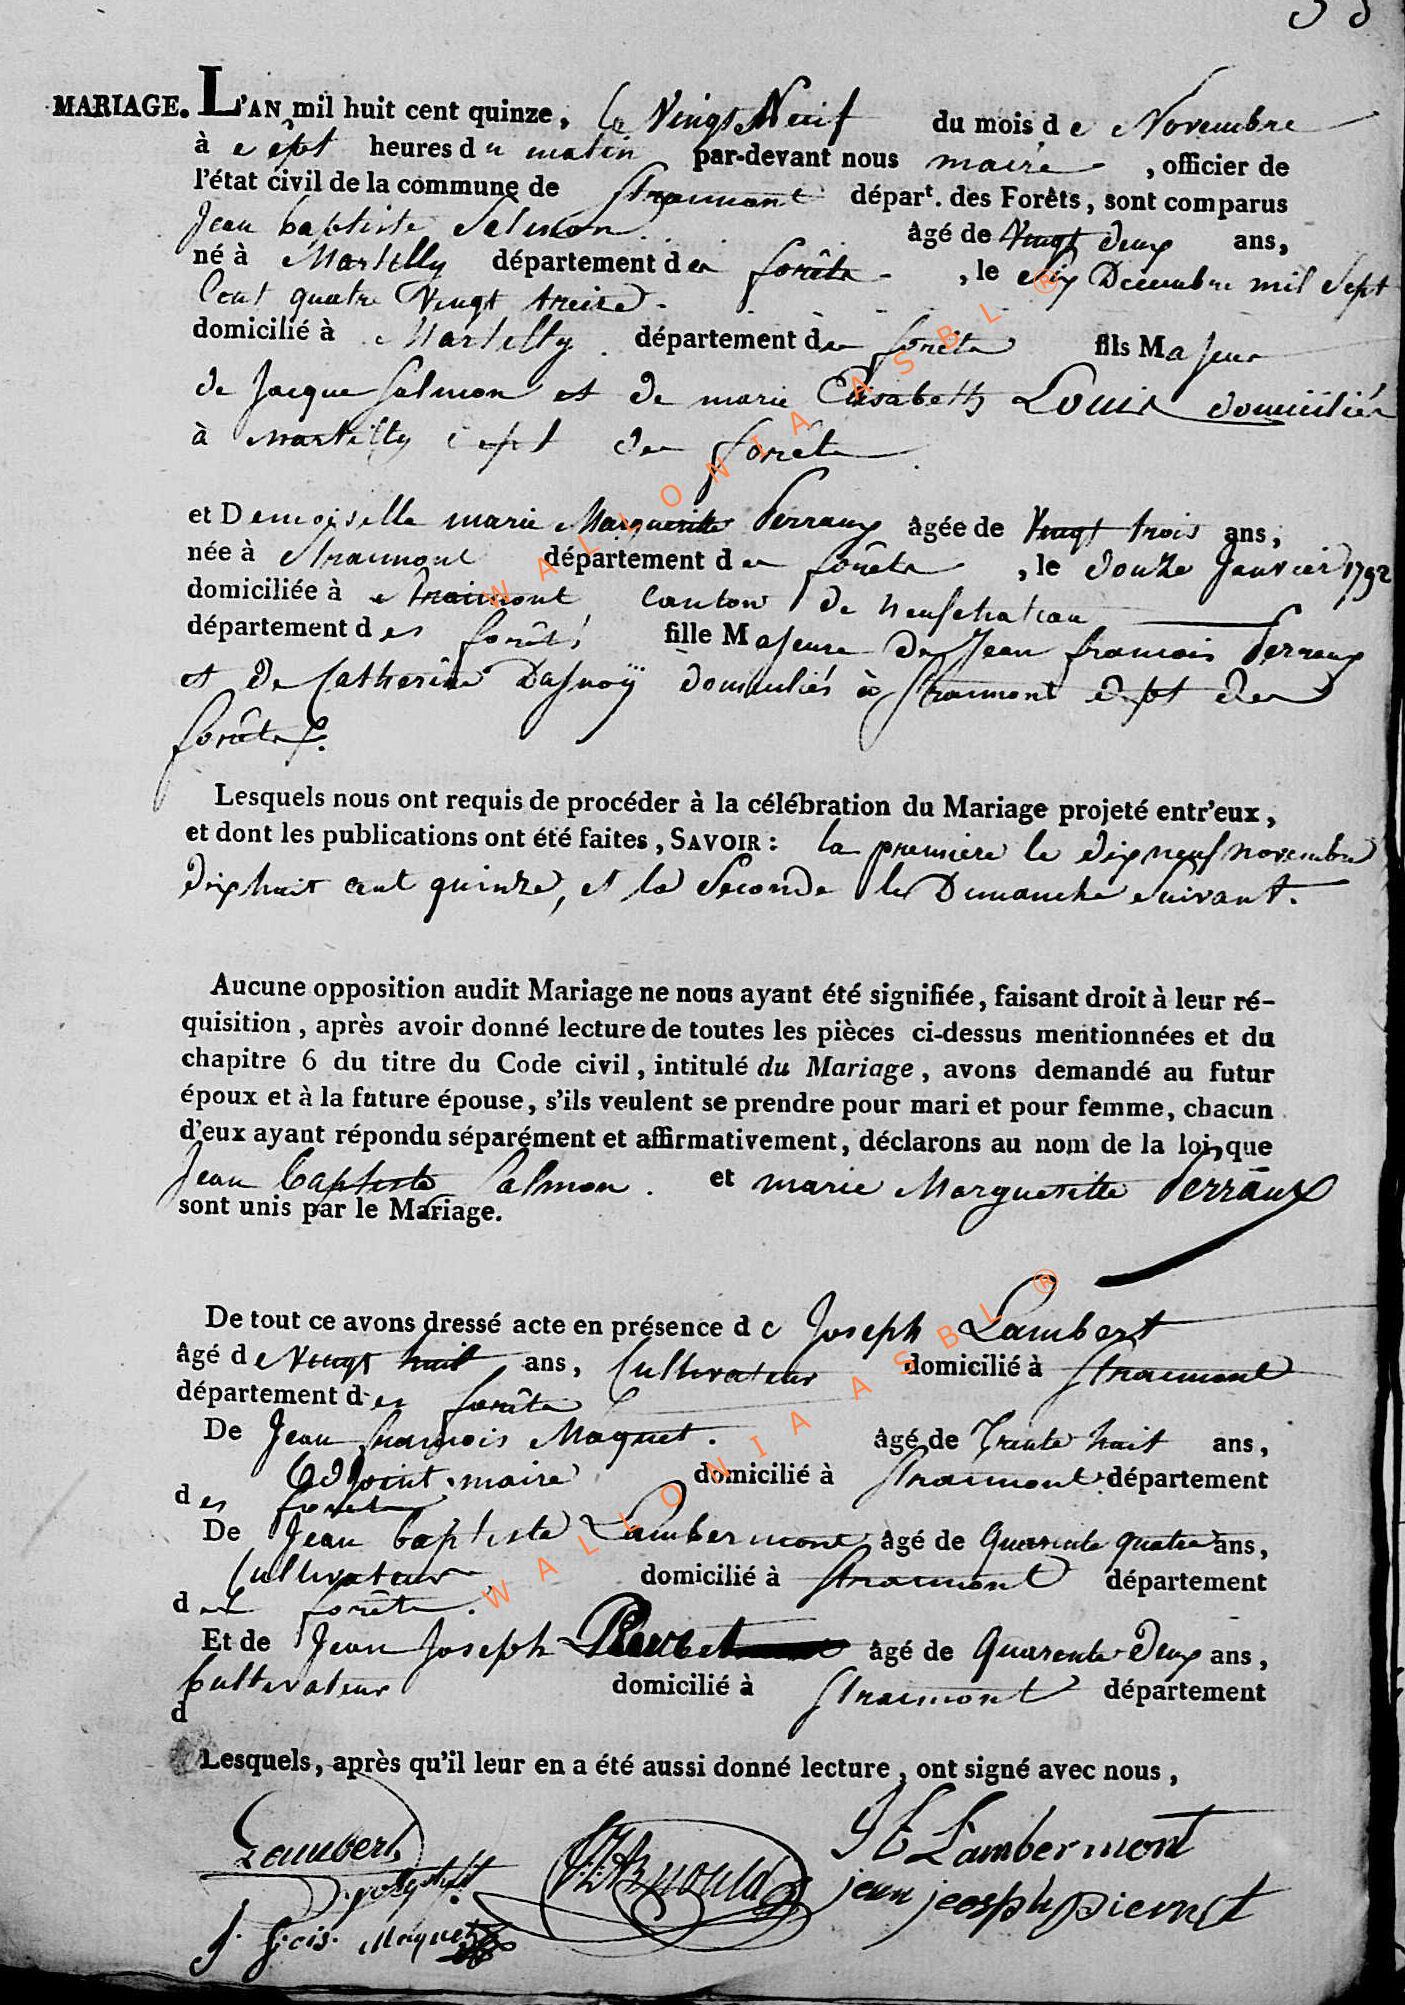 38
MARIAGE. L'AN mil huit cent quinze, le Vingt Neuf du mois de Novembre
à sept heures du matin par-devant nous maire, officier de
l'état civil de la commune de Straimont départ. des Forêts, sont comparus
Jean baptiste Salmon âgé de Vingt deux ans,
né à Martilly département des forêts, le Six Decembre mil Sept
Cent quatre Vingt treize.
domicilié à Martilly département des forêts fils Majeur
de Jacque Salmon et de marie Elisabeth Louis domiciliés
à Martilly dept des forêts
et Demoiselle marie Margueritte Perraux âgée de Vingt trois ans,
née à Straimont département des forêts, le douze Janvier 1792
domiciliée à Straimont Canton de neufchateau
département des forêts fille Majeure de Jean francois Perraux
et de Catherine Dasnoÿ domiciliés à Straimont dept des
forêts.
Lesquels nous ont requis de procéder à la célébration du Mariage projeté entr'eux,
et dont les publications ont été faites, SAVOIR : la premiere le dix neuf novembre
dix huit cent quinze, et la Seconde le Dimanche Suivant.
Aucune opposition audit Mariage ne nous ayant été signifiée, faisant droit à leur ré-
quisition, après avoir donné lecture de toutes les pièces ci-dessus mentionnées et du
chapitre 6 du titre du Code civil, intitulé du Mariage, avons demandé au futur
époux et à la future épouse, s'ils veulent se prendre pour mari et pour femme, chacun
d'eux ayant répondu séparément et affirmativement, déclarons au nom de la loi, que
Jean baptiste Salmon. et marie Margueritte Perraux
sont unis par le Mariage.
De tout ce avons dressé acte en présence de Joseph Lambert
âgé de Vingt huit ans, Cultivateur domicilié à Straimont
département des forêts
De Jean francois Maquet. âgé de Trente huit ans,
adjoint maire domicilié à Straimont département
des forets
De Jean baptiste Lambermont âgé de Quarente quatre ans,
Cultivateur domicilié à Straimont département
des forêts.
Et de Jean Joseph âgé de Quarente Deux ans,
Cultivateur domicilié à Straimont département
d
Lesquels, après qu'il leur en a été aussi donné lecture, ont signé avec nous,
Lambert
J. fcois. Maquet
Arnould
J B Lambermont
jean jeosph piernet
WALLONIA ASBL ®
WALLONIA ASBL ®